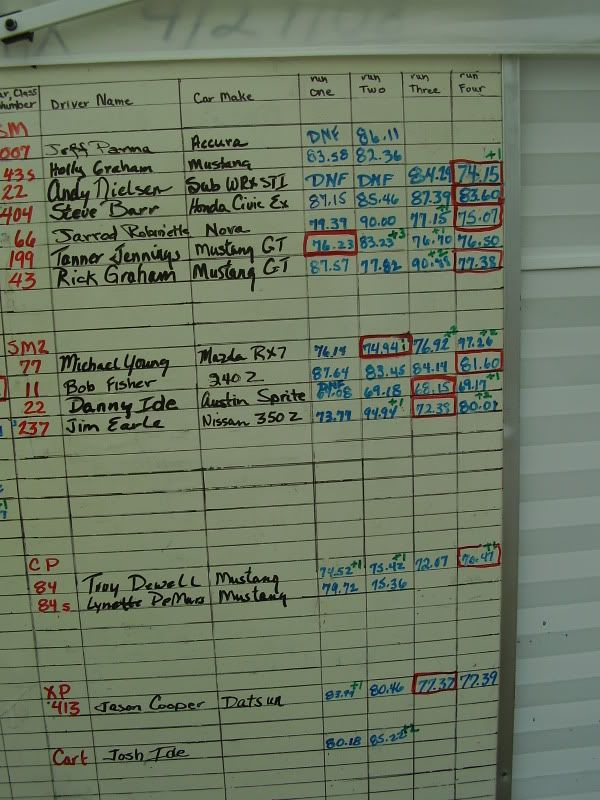 ar, Class Number Driver Name Car Make run One run Two run Three run Four
SM
007 Jeff Parma Accura DNF 86.11
43s Holly Graham Mustang 83.58 82.36 +1
22 Andy Nielsen Sub WRX STI DNF DNF 84.29 74.15
404 Steve Barr Honda Civic Ex 87.15 85.46 87.39 83.60
66 Jarrad Nova 79.39 90.00 77.15 75.07
199 Tanner Jennings Mustang GT 76.23 83.23 +3 76.70 76.50
43 Rick Graham Mustang GT 87.57 77.82 +2 77.38
SM2
77 Michael Young Mazda RX7 76.19 74.94 76.92 +2 97.26 +2
11 Bob Fisher 240Z 87.64 83.45 84.14 81.60
22 Danny Ide Austin Sprite DNF 69.18 68.15 69.17 +1
237 Jim Earle Nissan 350Z 73.79 +1 72.38 80.07
CP
84 Troy Dewell Mustang 74.52 +1 75.42 +1 72.07 70.47
84s Lynette DeMars Mustang 79.72 75.36
XP
413 Jason Cooper Datsun +1 80.46 77.37 77.39
Cart Josh Ide 80.18 85.22 +2